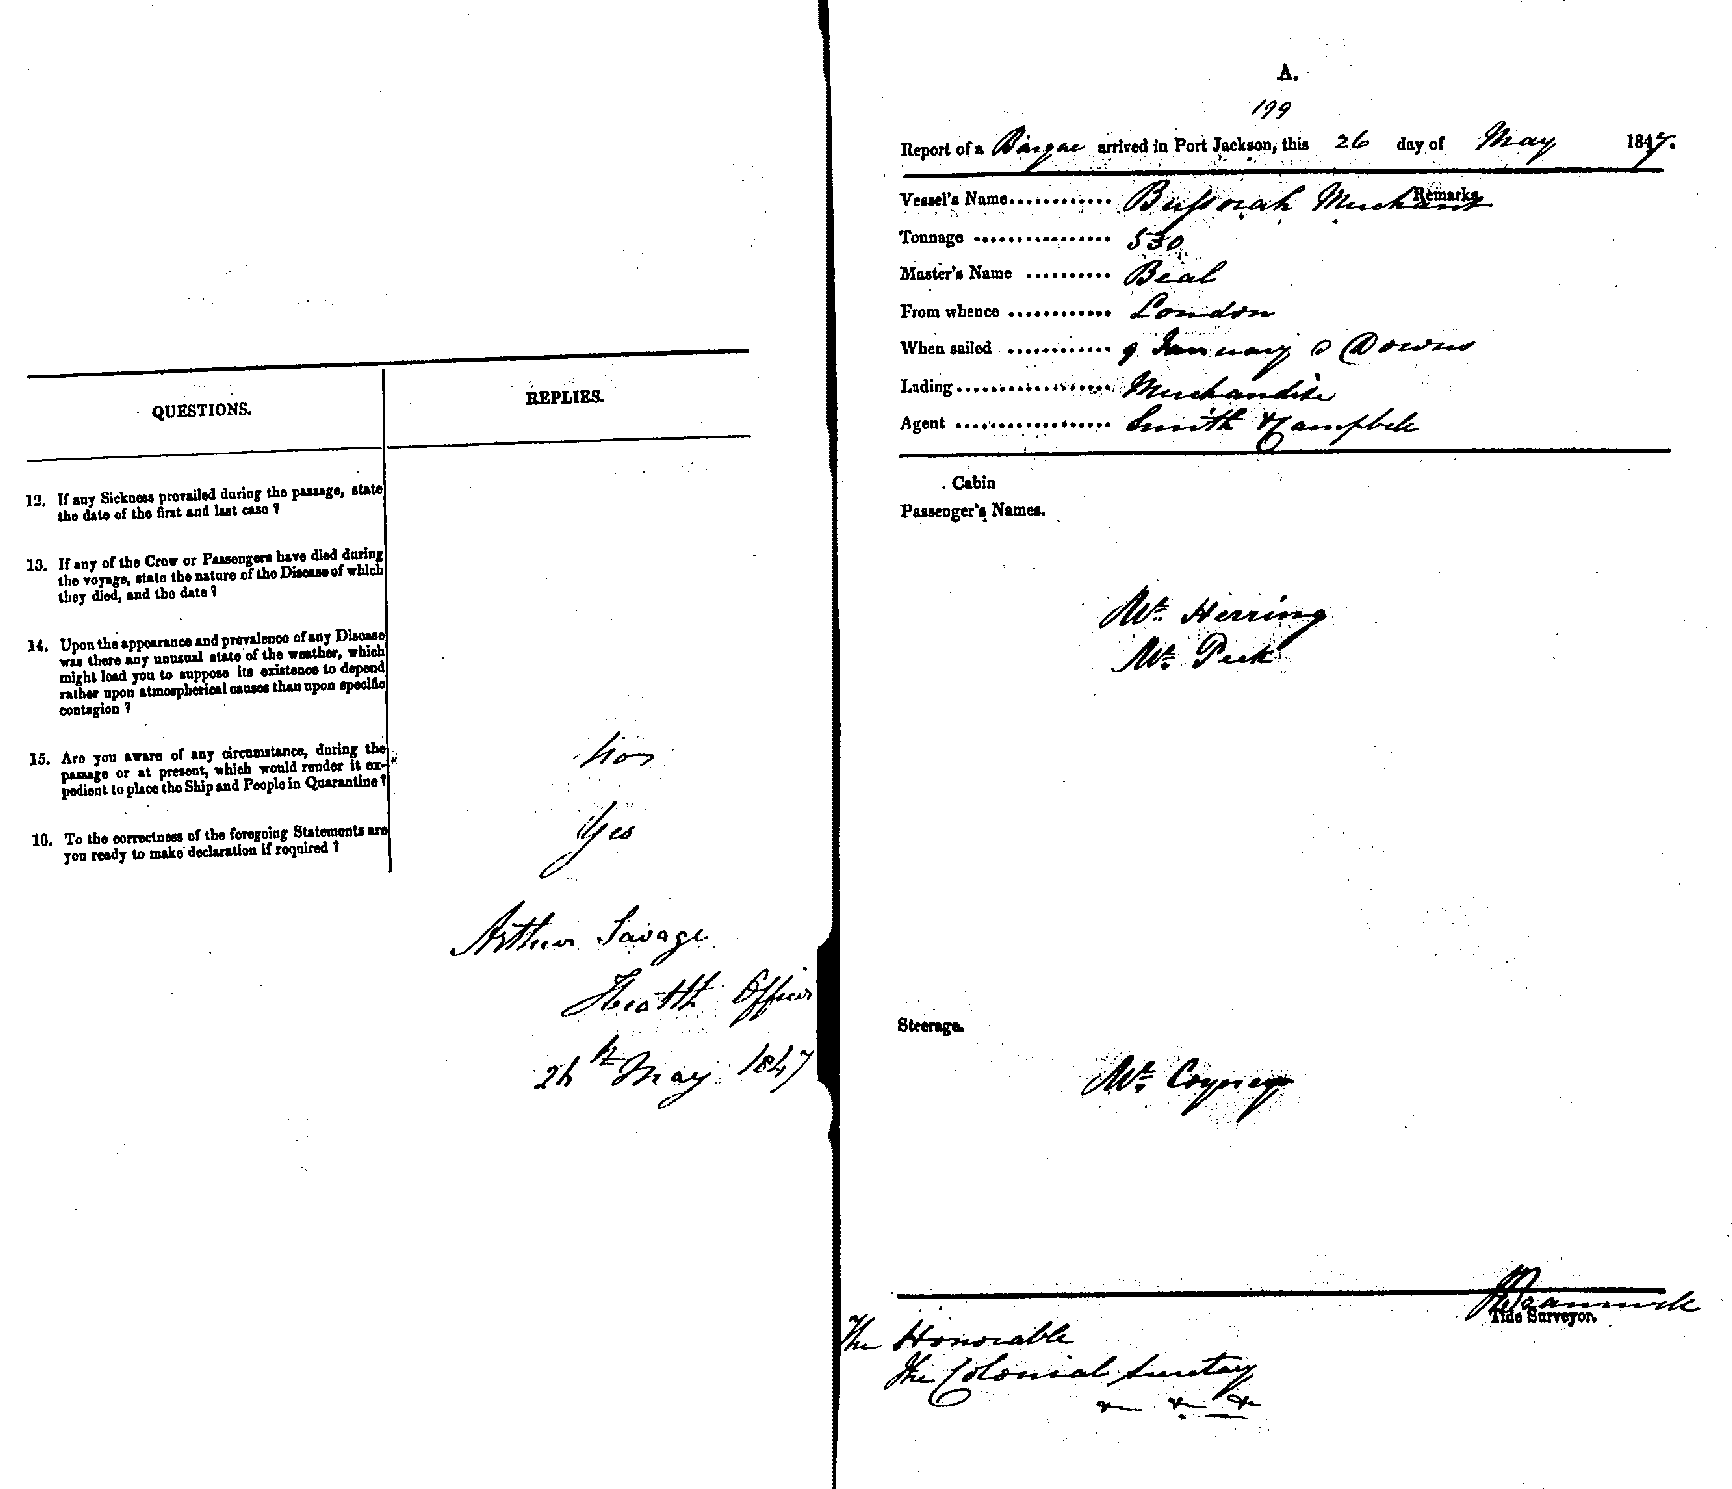 QUESTIONS.
REPLIES.
12. If any Sickness prevailed during the passage, state
the date of the first and last case?
13. If any of the Crew or Passengers have died during
the voyage, state the nature of the Disease of which
they died, and the date?
14. Upon the appearance and prevalence of any Disease
was there any unusual state of the weather, which
might lead you to suppose its existence to depend
rather upon atmospherical causes than upon specific
contagion?
15. Are you aware of any circumstance, during the
passage or at present, which would render it ex-
pedient to place the Ship and People in Quarantine?
16. To the correctness of the foregoing Statements are
you ready to make declaration if required?
Yes
Arthur Savage
Health Officer
26th May 1847
A.
199
Report of a Barque arrived in Port Jackson, this 26 day of May 1847.
Remarks
Vessel's Name............ Bussorah Merchant
Tonnage ................ 530
Master's Name .......... Beal
From whence ............ London
When sailed ............ 9 January Downs
Lading.................. Merchandise
Agent .................. Smith & Campbell
Cabin
Passenger's Names.
Mr. Herring
Mr. Peek
Steerage.
Mr.
Tide Surveyor.
The Honorable
The Colonial Secretary
&c &c &c